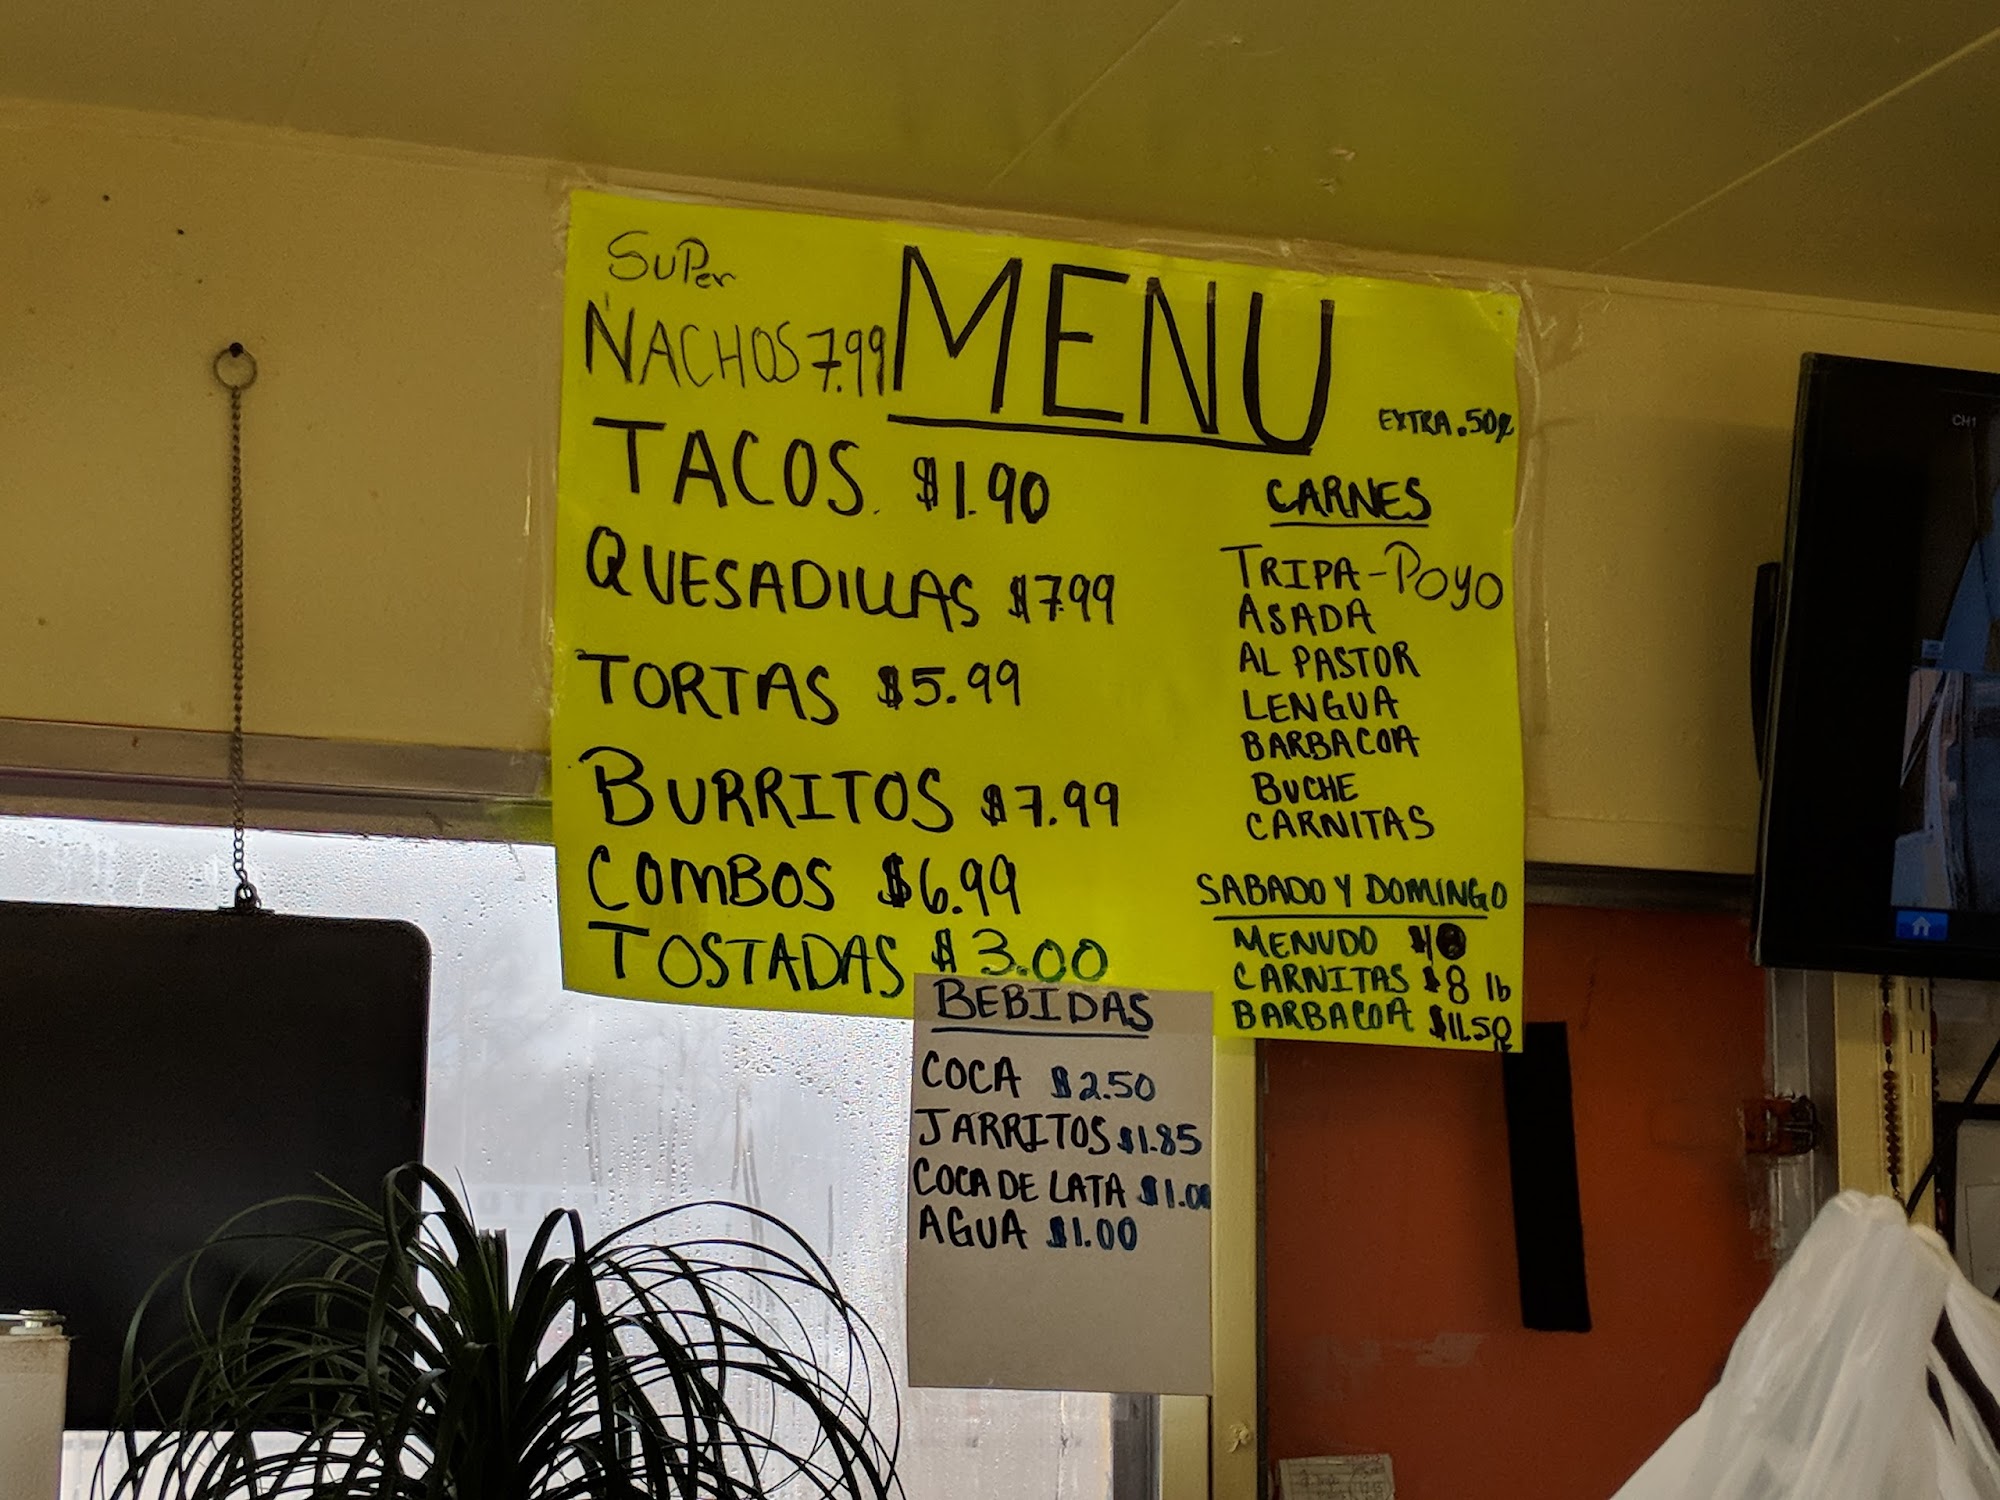 SuPer
NACHOS 7.99
MENU
TACOS. $1.90
QUESADILLAS $7.99
TORTAS $5.99
BURRITOS $7.99
COMBOS $6.99
TOSTADAS $3.00
EXTRA .50¢
CARNES
TRIPA-Poyo
ASADA
AL PASTOR
LENGUA
BARBACOA
BUCHE
CARNITAS
SABADO Y DOMINGO
MENUDO
CARNITAS $8 lb
BARBACOA $11.50
BEBIDAS
COCA $2.50
JARRITOS $1.85
COCA DE LATA $1.00
AGUA $1.00
CH1